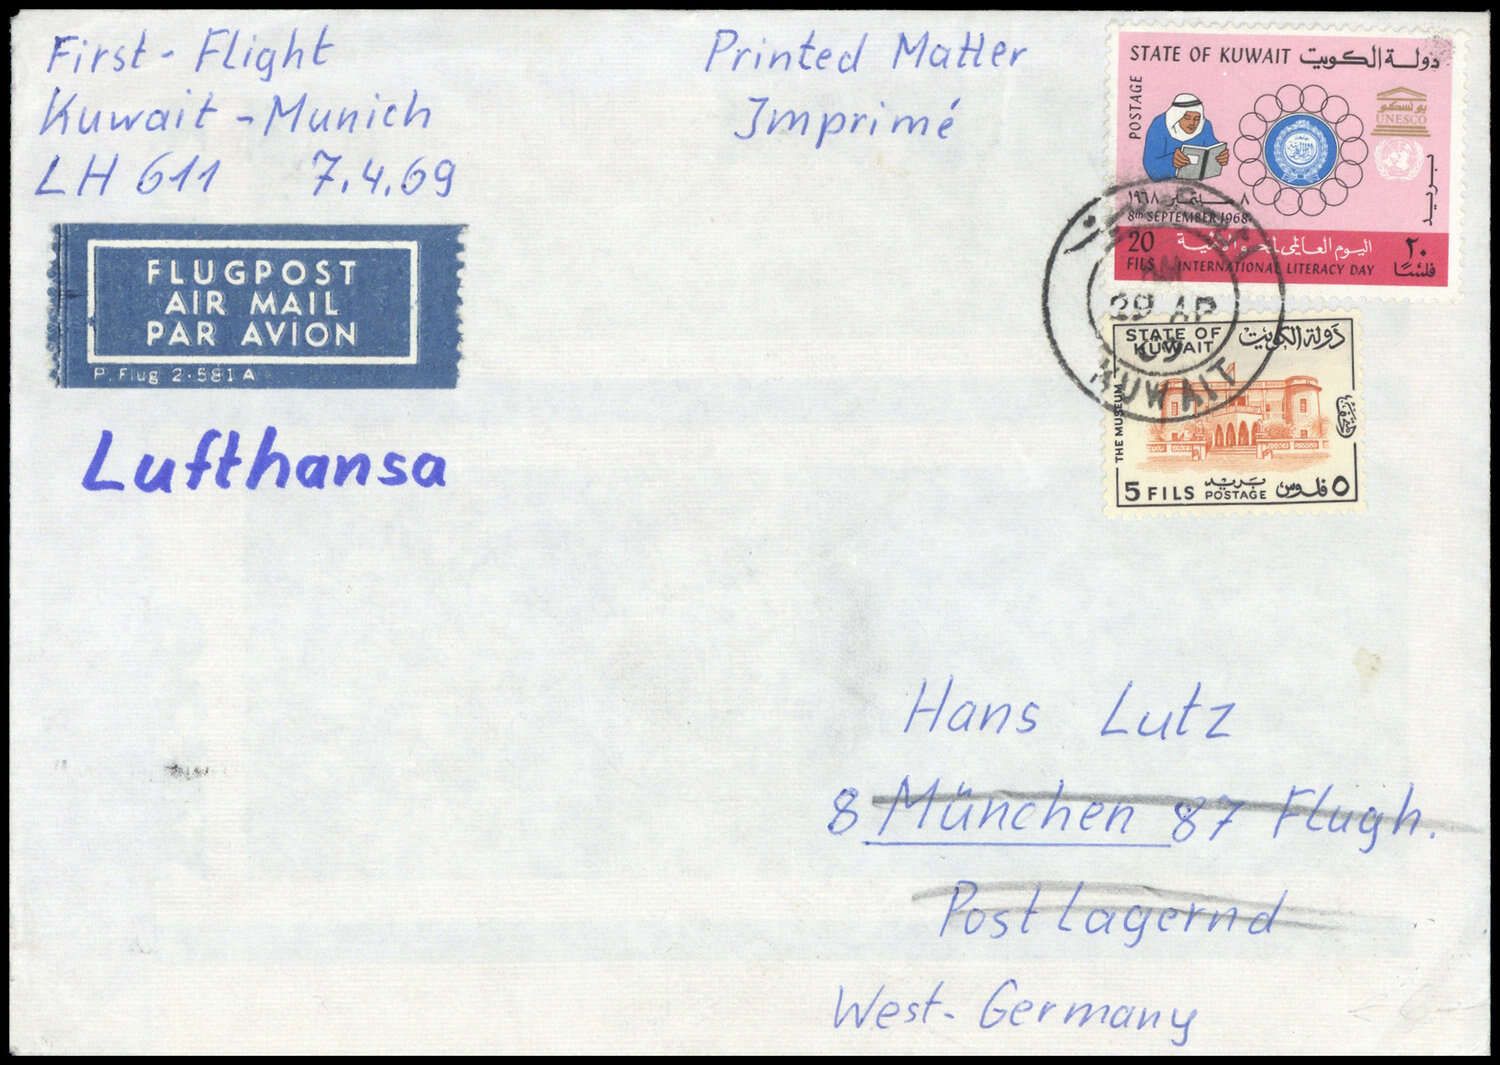 First-Flight
Kuwait-Munich
LH 611 7.4.69
Printed Matter
Imprimé
FLUGPOST
AIR MAIL
PAR AVION
P. Flug 2-581 A
Lufthansa
STATE OF KUWAIT دولة الكويت
POSTAGE
بونسكو
UNESCO
بريد
٨ سبتمبر ١٩٦٨
8th SEPTEMBER 1968
20 FILS
اليوم العالمي لمحو الأمية
INTERNATIONAL LITERACY DAY
٢٠ فلسًا
AM
29 AP
69
KUWAIT
STATE OF KUWAIT دولة الكويت
THE MUSEUM
5 FILS بريد POSTAGE ٥ فلوس
Hans Lutz
8 München 87 Flugh.
Postlagernd
West-Germany